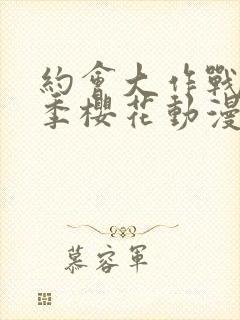 約會大作戰
季櫻花動漫
慕容軍